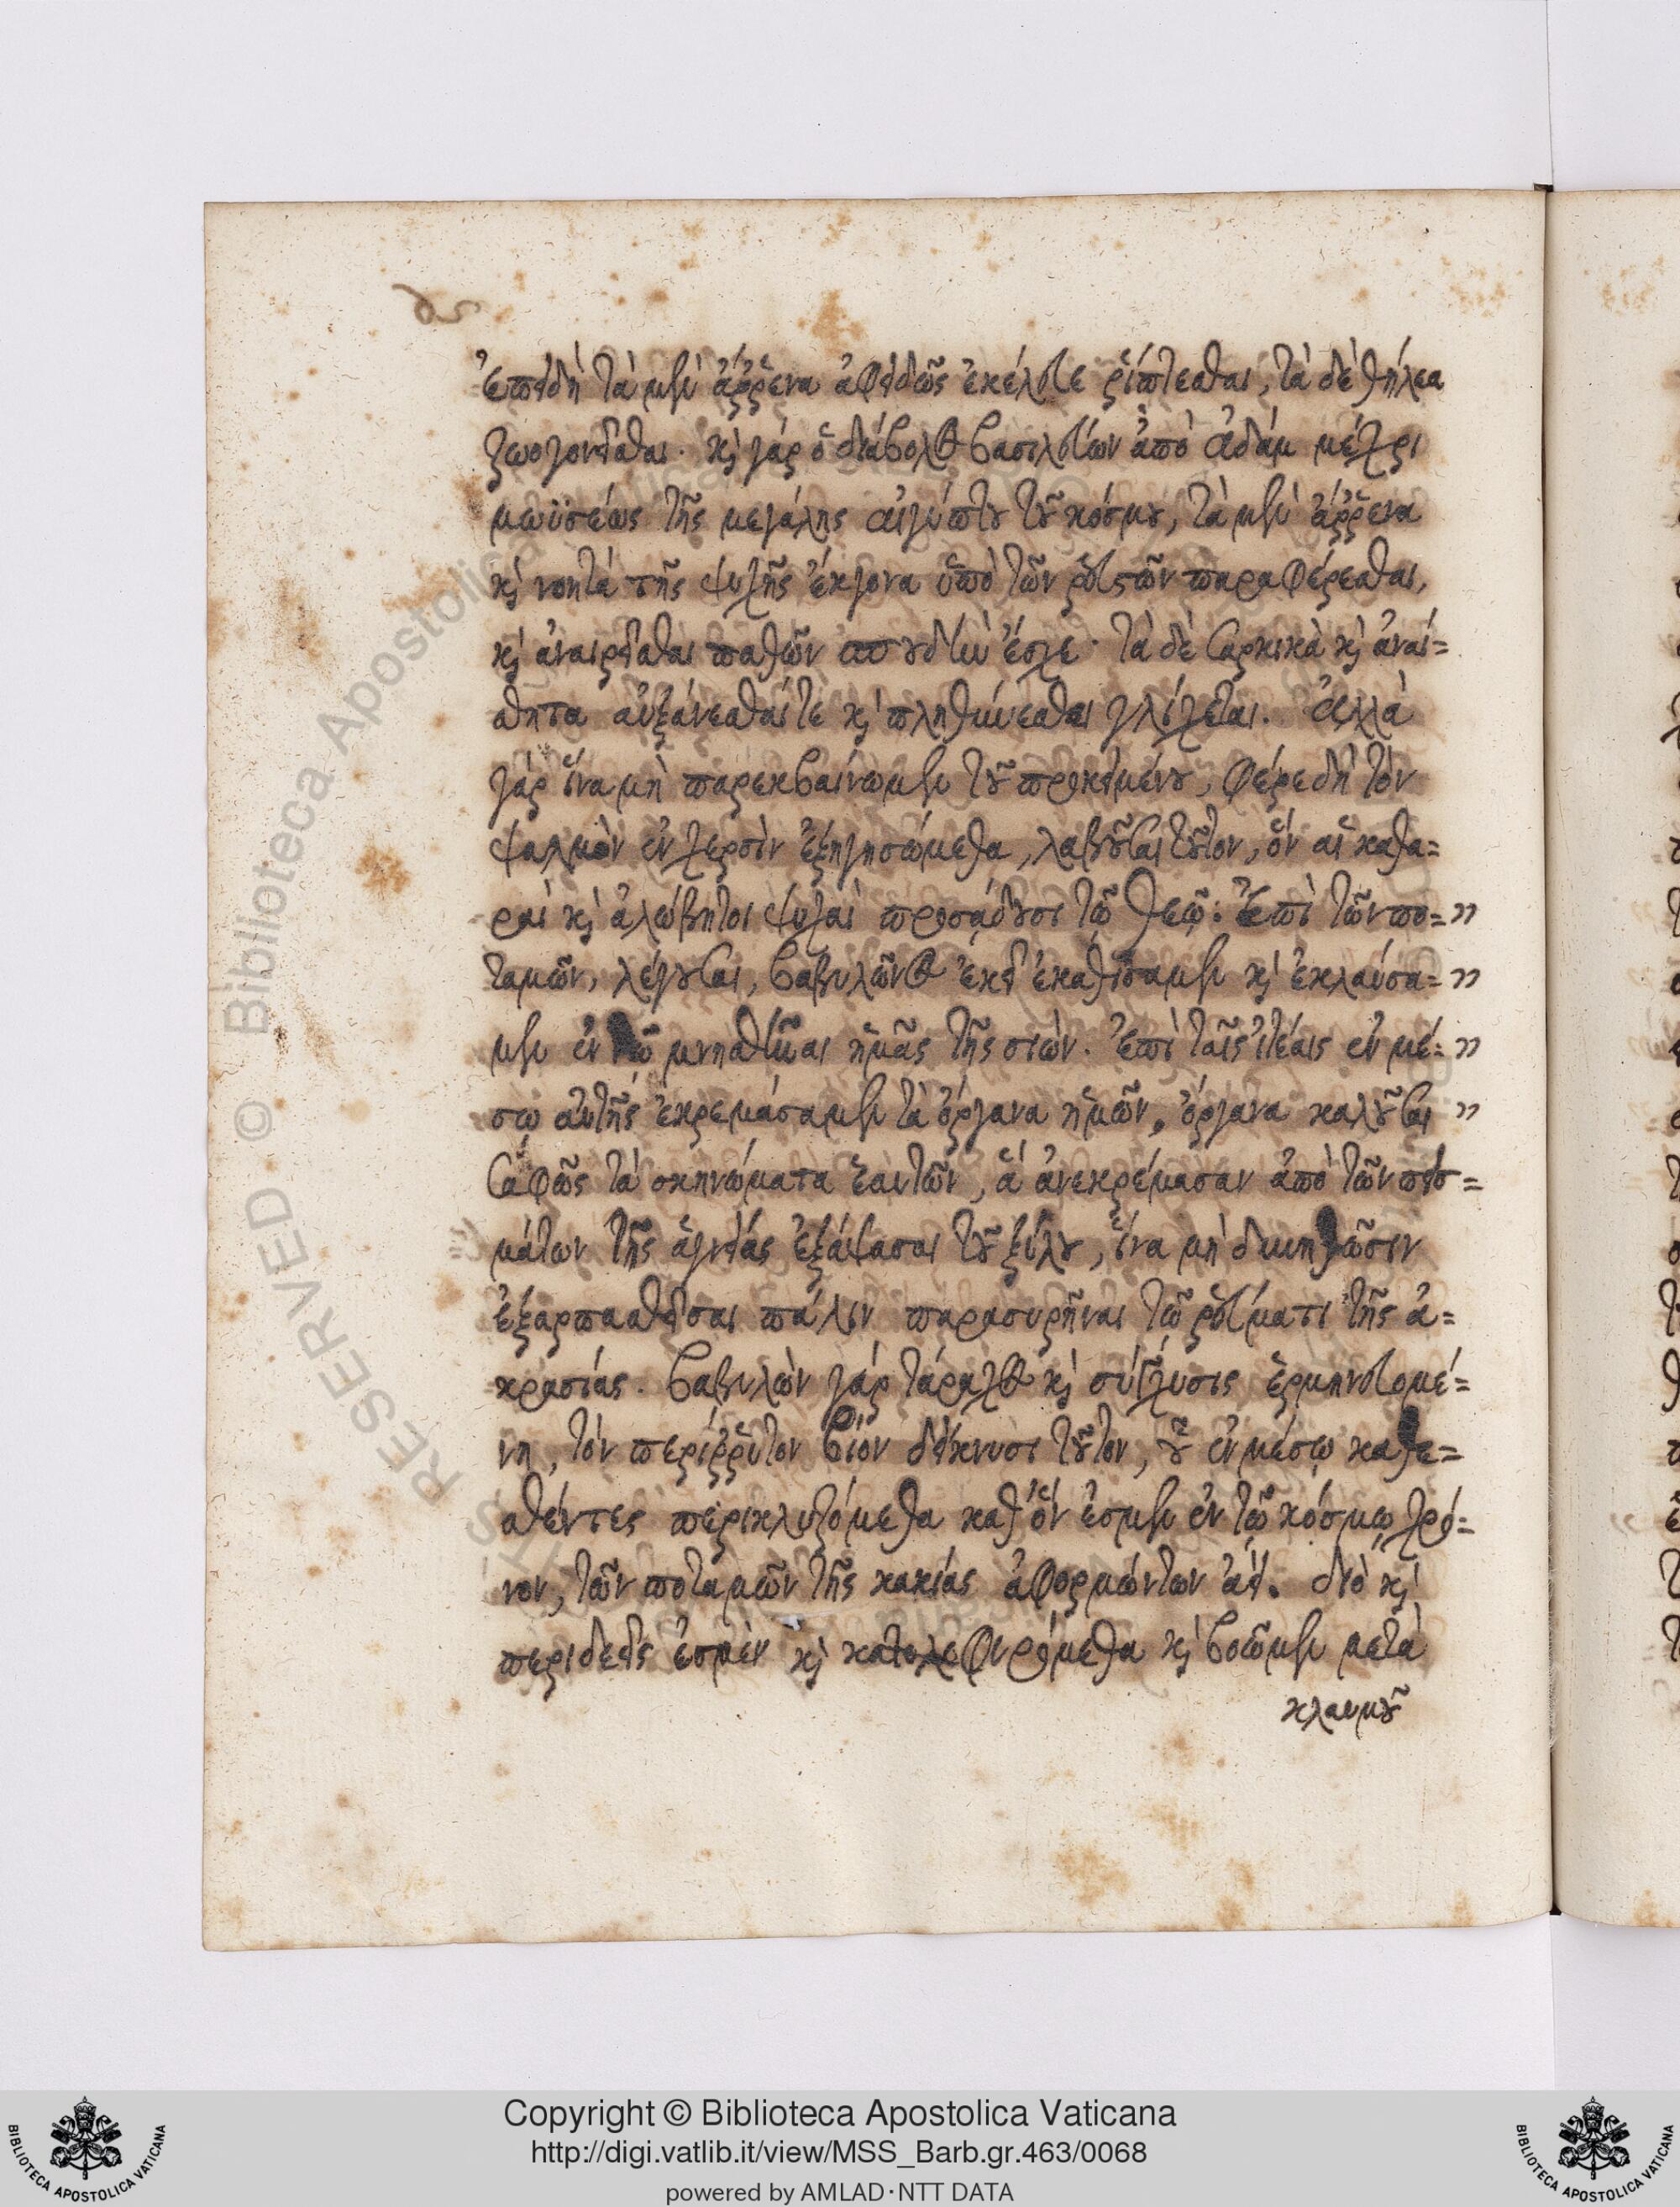 Ἐπειδὴ τὰ μὲν ἄῤῥενα ἀφειδῶς ἐκέλευε ῥίπτεσθαι, τὰ δὲ θήλεα
ζωογονεῖσθαι. καὶ γὰρ ὁ διάβολος βασιλεύων ἀπὸ Ἀδάμ μέχρι
μωϋσέως τῆς μεγάλης αἰγύπτου τοῦ κόσμου, τὰ μὲν ἄῤῥενα
καὶ νοητὰ τῆς ψυχῆς ἔκγονα ὑπὸ τῶν ῥευστῶν παραφέρεσθαι,
καὶ ἀναιρεῖσθαι παθῶν σπουδὴν ἔσχε· τὰ δὲ σαρκικὰ καὶ ἀναί=
σθητα αὐξάνεσθαί τε καὶ πληθύνεσθαι γλίχεται. Ἀλλὰ
γὰρ ἵνα μὴ παρεκβαίνωμεν τοῦ προκειμένου, φέρε δὴ τὸν
ψαλμὸν ἐν χερσὶν ἐξηγησώμεθα, λαβοῦσαι τοῦτον, ὃν αἱ καθα=
ραὶ καὶ ἀλώβητοι ψυχαὶ προσᾴδουσι τῷ θεῷ: Ἐπὶ τῶν πο= »
ταμῶν, λέγουσαι, βαβυλῶνος ἐκεῖ ἐκαθίσαμεν καὶ ἐκλαύσα= »
μεν ἐν τῷ μνησθῆναι ἡμᾶς τῆς σιών. Ἐπὶ ταῖς ἰτέαις ἐν μέ= »
σῳ αὐτῆς ἐκρεμάσαμεν τὰ ὄργανα ἡμῶν, ὄργανα καλοῦσαι »
σαφῶς τὰ σκηνώματα ἑαυτῶν, ἃ ἀνεκρέμασαν ἀπὸ τῶν πεισ=
μάτων τῆς ἁγνείας ἐξάψασαι τοῦ ξύλου, ἵνα μὴ δυνηθῶσιν
ἐξαρπασθεῖσαι πάλιν παρασυρῆναι τῷ ῥεύματι τῆς ἀ=
κρασίας. Βαβυλὼν γὰρ τάραχος καὶ σύγχυσις ἑρμηνευομέ=
νη, τὸν περίῤῥυτον βίον δείκνυσι τοῦτον, οὗ ἐν μέσῳ καθε=
σθέντες περικλυζόμεθα καθ' ὅν ἐσμεν ἐν τῷ κόσμῳ χρό=
νον, τῶν ποταμῶν τῆς κακίας ἀφορμώντων ἀεί. διὸ καὶ
περιδεεῖς ἐσμὲν καὶ κατολοφυρόμεθα καὶ βοῶμεν μετὰ
κλαυμοῦ
Copyright © Biblioteca Apostolica Vaticana
http://digi.vatlib.it/view/MSS_Barb.gr.463/0068
powered by AMLAD·NTT DATA